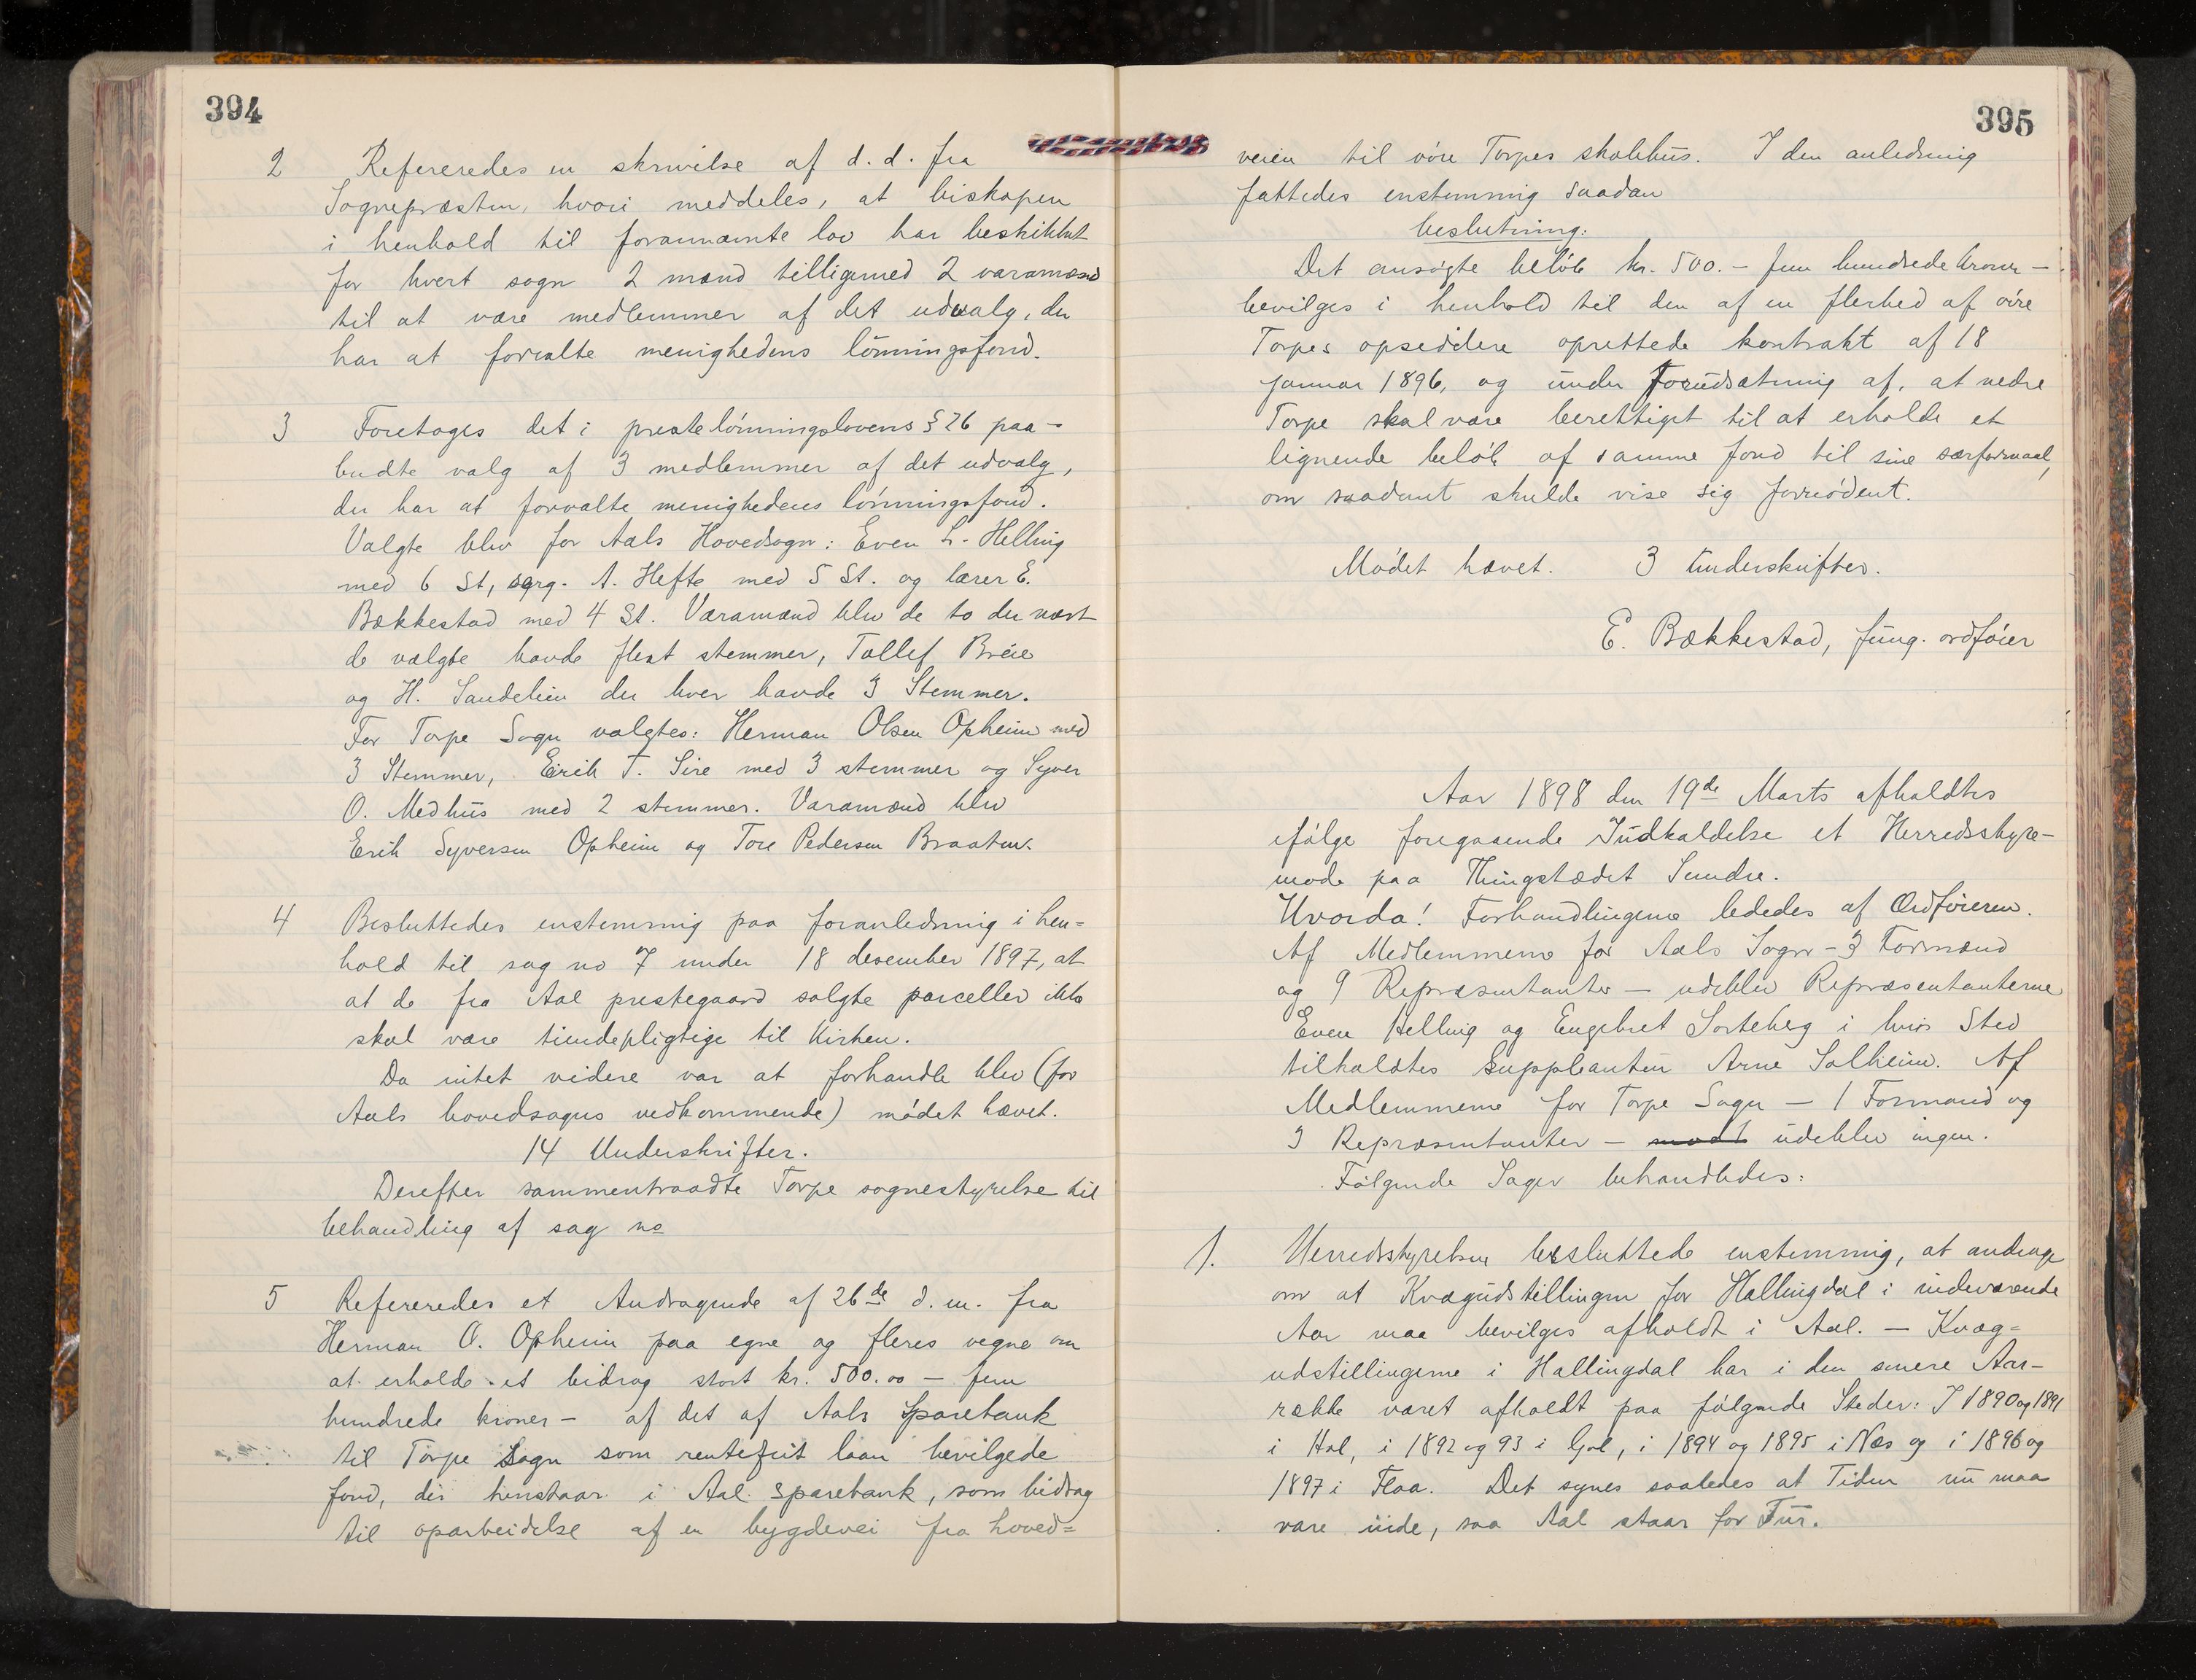 394
2 Refereredes en skrivelse af d.d. fra
Sognepræsten, hvori meddeles, at biskopen
i henhold til forannævnte lov har beskikket
for hvert sogn 2 mænd tilligemed 2 varamænd
til at være medlemmer af det udvalg, der
har at forvalte menighedens lønningsfond.
3 Foretoges det i prestelønningslovens § 26 paa-
budte valg af 3 medlemmer af det udvalg,
der har at forvalte menighedens lønningsfond.
Valgte blev for Aals Hovedsogn: Even L. Helling
med 6 St, serg. A. Hefte med 5 St. og lærer E.
Bækkestad med 4 St. Varamænd blev de to der næst
de valgte havde flest stemmer, Tollef Breie
og H. Sandelien der hver havde 3 Stemmer.
For Torpe Sogn valgtes: Herman Olsen Opheim med
3 Stemmer, Eirik T. Sire med 3 stemmer og Syver
O. Medhus med 2 stemmer. Varamænd blev
Erik Syversen Opheim og Tore Pedersen Braaten.
4 Besluttedes enstemmig paa foranledning i hen=
hold til sag no 7 under 18 desember 1897, at
at de fra Aal prestegaard solgte parceller ikke
skal være tiendepligtige til Kirken.
Da intet videre var at forhandle blev (for
Aals hovedsogns vedkommende) mødet hævet.
14 Underskrifter.
Derefter sammentraadte Torpe sognestyrelse til
behandling af sag no
5 Refereredes et Andragende af 26de d.m. fra
Herman O. Opheim paa egne og fleres vegne om
at erholde et bidrag stort kr. 500.00 - fem
hundrede kroner - af det af Aals Sparebank
til Torpe Sogn som rentefrit laan bevilgede
fond, der henstaar i Aal Sparebank, som bidrag
til oparbeidelse af en bygdevei fra hoved=
395
veien til øvre Torpes skolehus. I den anledning
fattedes enstemmig saadan
beslutning:
Det ansøgte beløb kr. 500.- fem hundrede kroner -
bevilges i henhold til den af en flerhed af øvre
Torpes opsiddere oprettede kontrakt af 18
januar 1896, og under Forudsætning af, at nedre
Torpe skal være berettiget til at erholde et
lignende beløb af samme fond til sine særformaal,
om saadant skulde vise sig fornødent.
Mødet hævet. 3 Underskrifter.
E. Bækkestad, fung. ordfører
Aar 1898 den 19de Marts afholdtes
ifølge foregaaende Indkaldelse et Herredsstyre-
møde paa Thingstedet Sundre.
Hvorda! Forhandlingerne lededes af Ordføreren.
Af Medlemmerne for Aals Sogn - 3 Formænd
og 9 Repræsentanter - udeblev Repræsentanterne
Even Helling og Engebret Sorteberg i hvis Sted
tilkaldtes Suppleanten Arne Solheim. Af
Medlemmerne for Torpe Sogn - 1 Formand og
3 Repræsentanter - mødt udeblev ingen.
Følgende Sager behandledes:
1. Herredsstyrelsen besluttede enstemmig, at andrage
om at Kvægudstillingen for Hallingdal i indeværende
Aar maa bevilges afholdt i Aal. - Kvæg=
udstillingerne i Hallingdal har i den senere Aar-
række været afholdt paa følgende Steder: I 1890 og 1891
i Hol, i 1892 og 93 i Gol, i 1894 og 1895 i Næs og i 1896 og
1897 i Flaa. Det synes saaledes at Tiden nu maa
være inde, saa Aal staar for Tur.